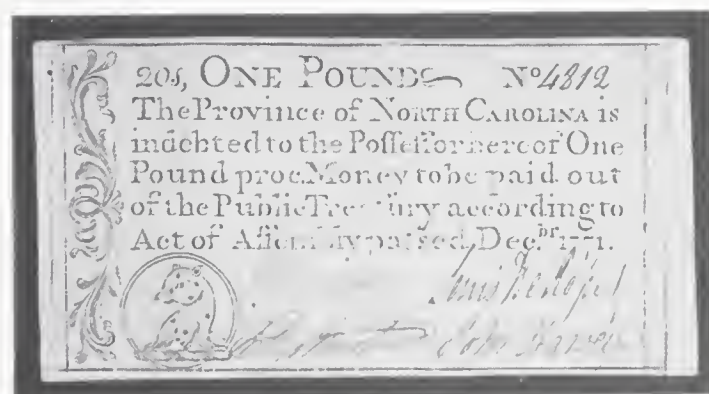 20s, ONE POUND No 4812
The Province of NORTH CAROLINA is
indebted to the Possessor hereof One
Pound proc. Money to be paid out
of the Public Treasury according to
Act of Assembly passed, Decbr. 1771.